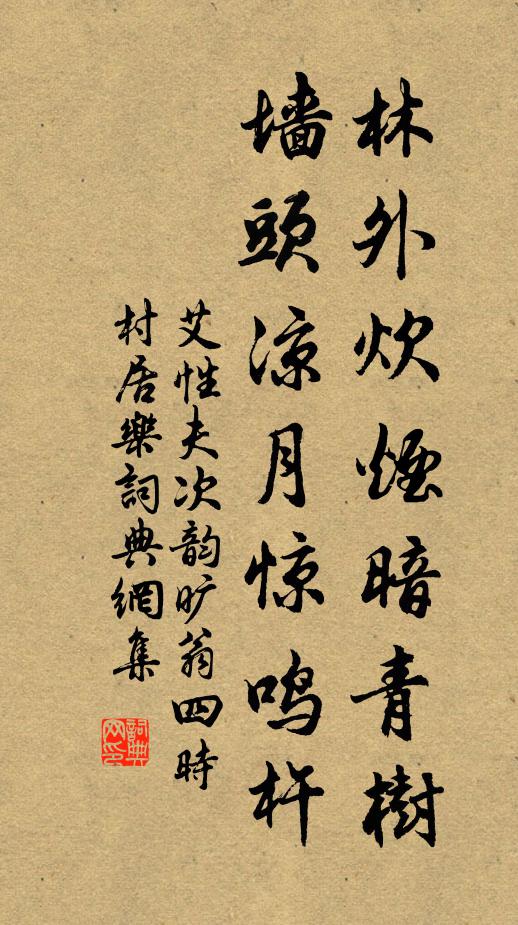 林外炊煙暗青樹
墙頭凉月惊鸣杵
艾性夫次韵旷翁四時
村居樂詞典網集
詞典网印